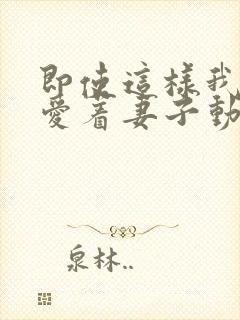 即使這樣我
愛着妻子動
泉林..